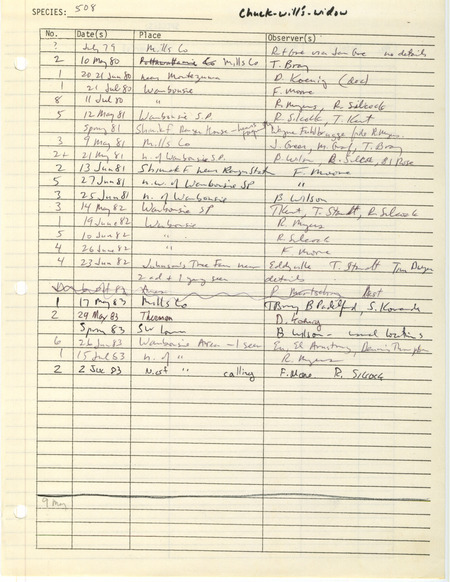 SPECIES: 508 Chuck-will's-widow
No. Date(s) Place Observer(s)
? July 79 Mills Co no details
2 10 May 80 Mills Co T. Bray
1 20 21 Jun 80 near Montezuma D. Koenig
1 21 Jul 80 Waubonsie F. Moore
8 11 Jul 80 " R. Myers, R. Silcock
5 12 May 81 Waubonsie S.P. R. Silcock, T. Kent
Spring 81 Shimek F. Ranger House
3 9 May 81 Mills Co J. Green, T. Bray
2+ 21 May 81 n. of Waubonsie S.P. B. Wilson, R. Silcock, R. Rose
2 13 Jun 81 Shimek F near Ranger Station F. Moore
5 27 Jun 81 n.w. of Waubonsie SP "
3 25 Jun 81 n. of Waubonsie B Wilson
3 14 May 82 Waubonsie SP T Kent, T. Staudt, R. Silcock
1 19 Jun 82 Waubonsie R. Myers
5 10 Jun 82 " R Silcock
4 26 Jun 82 " F Moore
4 23 Jun 82 Johnson's Tree Farm near Eddyville T. Staudt
2 ad + 1 yng seen details
1 17 May 83 Mills Co T Bray B Padelford, S. Kovanda
2 29 May 83 Thurman
Spring 83 SW Iowa B Wilson - usual locations
6 26 Jun 83 Waubonsie Area - 1 seen Armstrong, Dennis Thompson
1 15 Jul 83 n. of " R. Myers
2 2 Jul 83 N. of " calling F. Moore R. Silcock
9 May